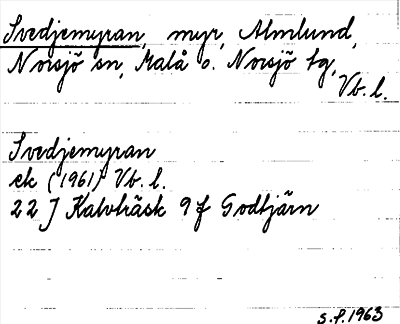 Svedjemyran, myr, Almlund,
Norsjö sn, Malå o. Norsjö tg,
Vb. l.
Svedjemyran
ek (1961) Vb. l.
22 J Kalvträsk 9 f Godtjärn
S.f. 1963